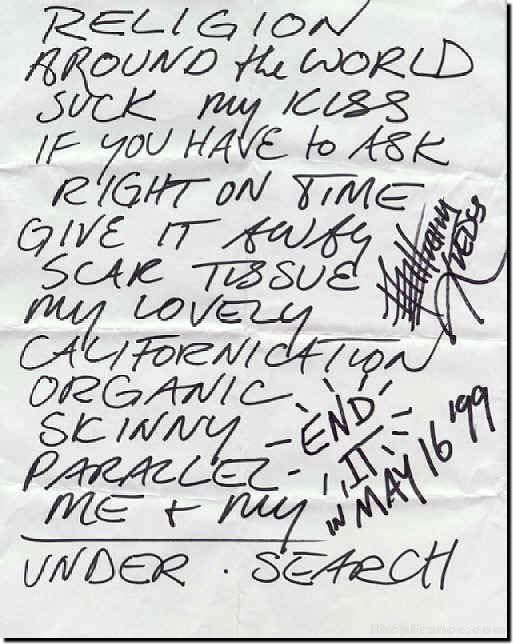 RELIGION
AROUND the WORLD
SUCK MY KISS
IF YOU HAVE to ASK
RIGHT ON TIME
GIVE IT AWAY
SCAR TISSUE
MY LOVELY
CALIFORNICATION
ORGANIC
SKINNY
PARALLEL
ME + MY
UNDER . SEARCH
END
IT
IN MAY 16 '99